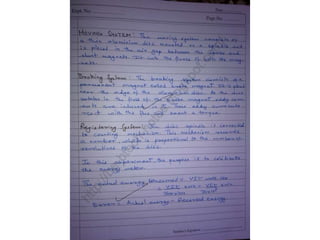 Expt. No.
Date
Page No.
MOVING SYSTEM: The moving system consists of
a thin aluminium disc mounted on a spindle and
is placed in the air gap between the series and
shunt magnets. It cuts the fluxes of both the mag-
nets.
Braking System: The braking system consists of a
permanent magnet called brake magnet. It is placed
near the edge of the aluminium disc. As the disc
rotates in the field of the brake magnet eddy curr-
ents are induced in it. These eddy currents
react with the flux and exert a torque.
Registering System: The disc spindle is connected
to counting mechanism. This mechanism records
a number, which is proportional to the number of
revolutions of the disc.
In this experiment the purpose is to calibrate
the energy meter.
The actual energy consumed = VIt
Error = Actual energy - Recorded energy
Teacher's Signature